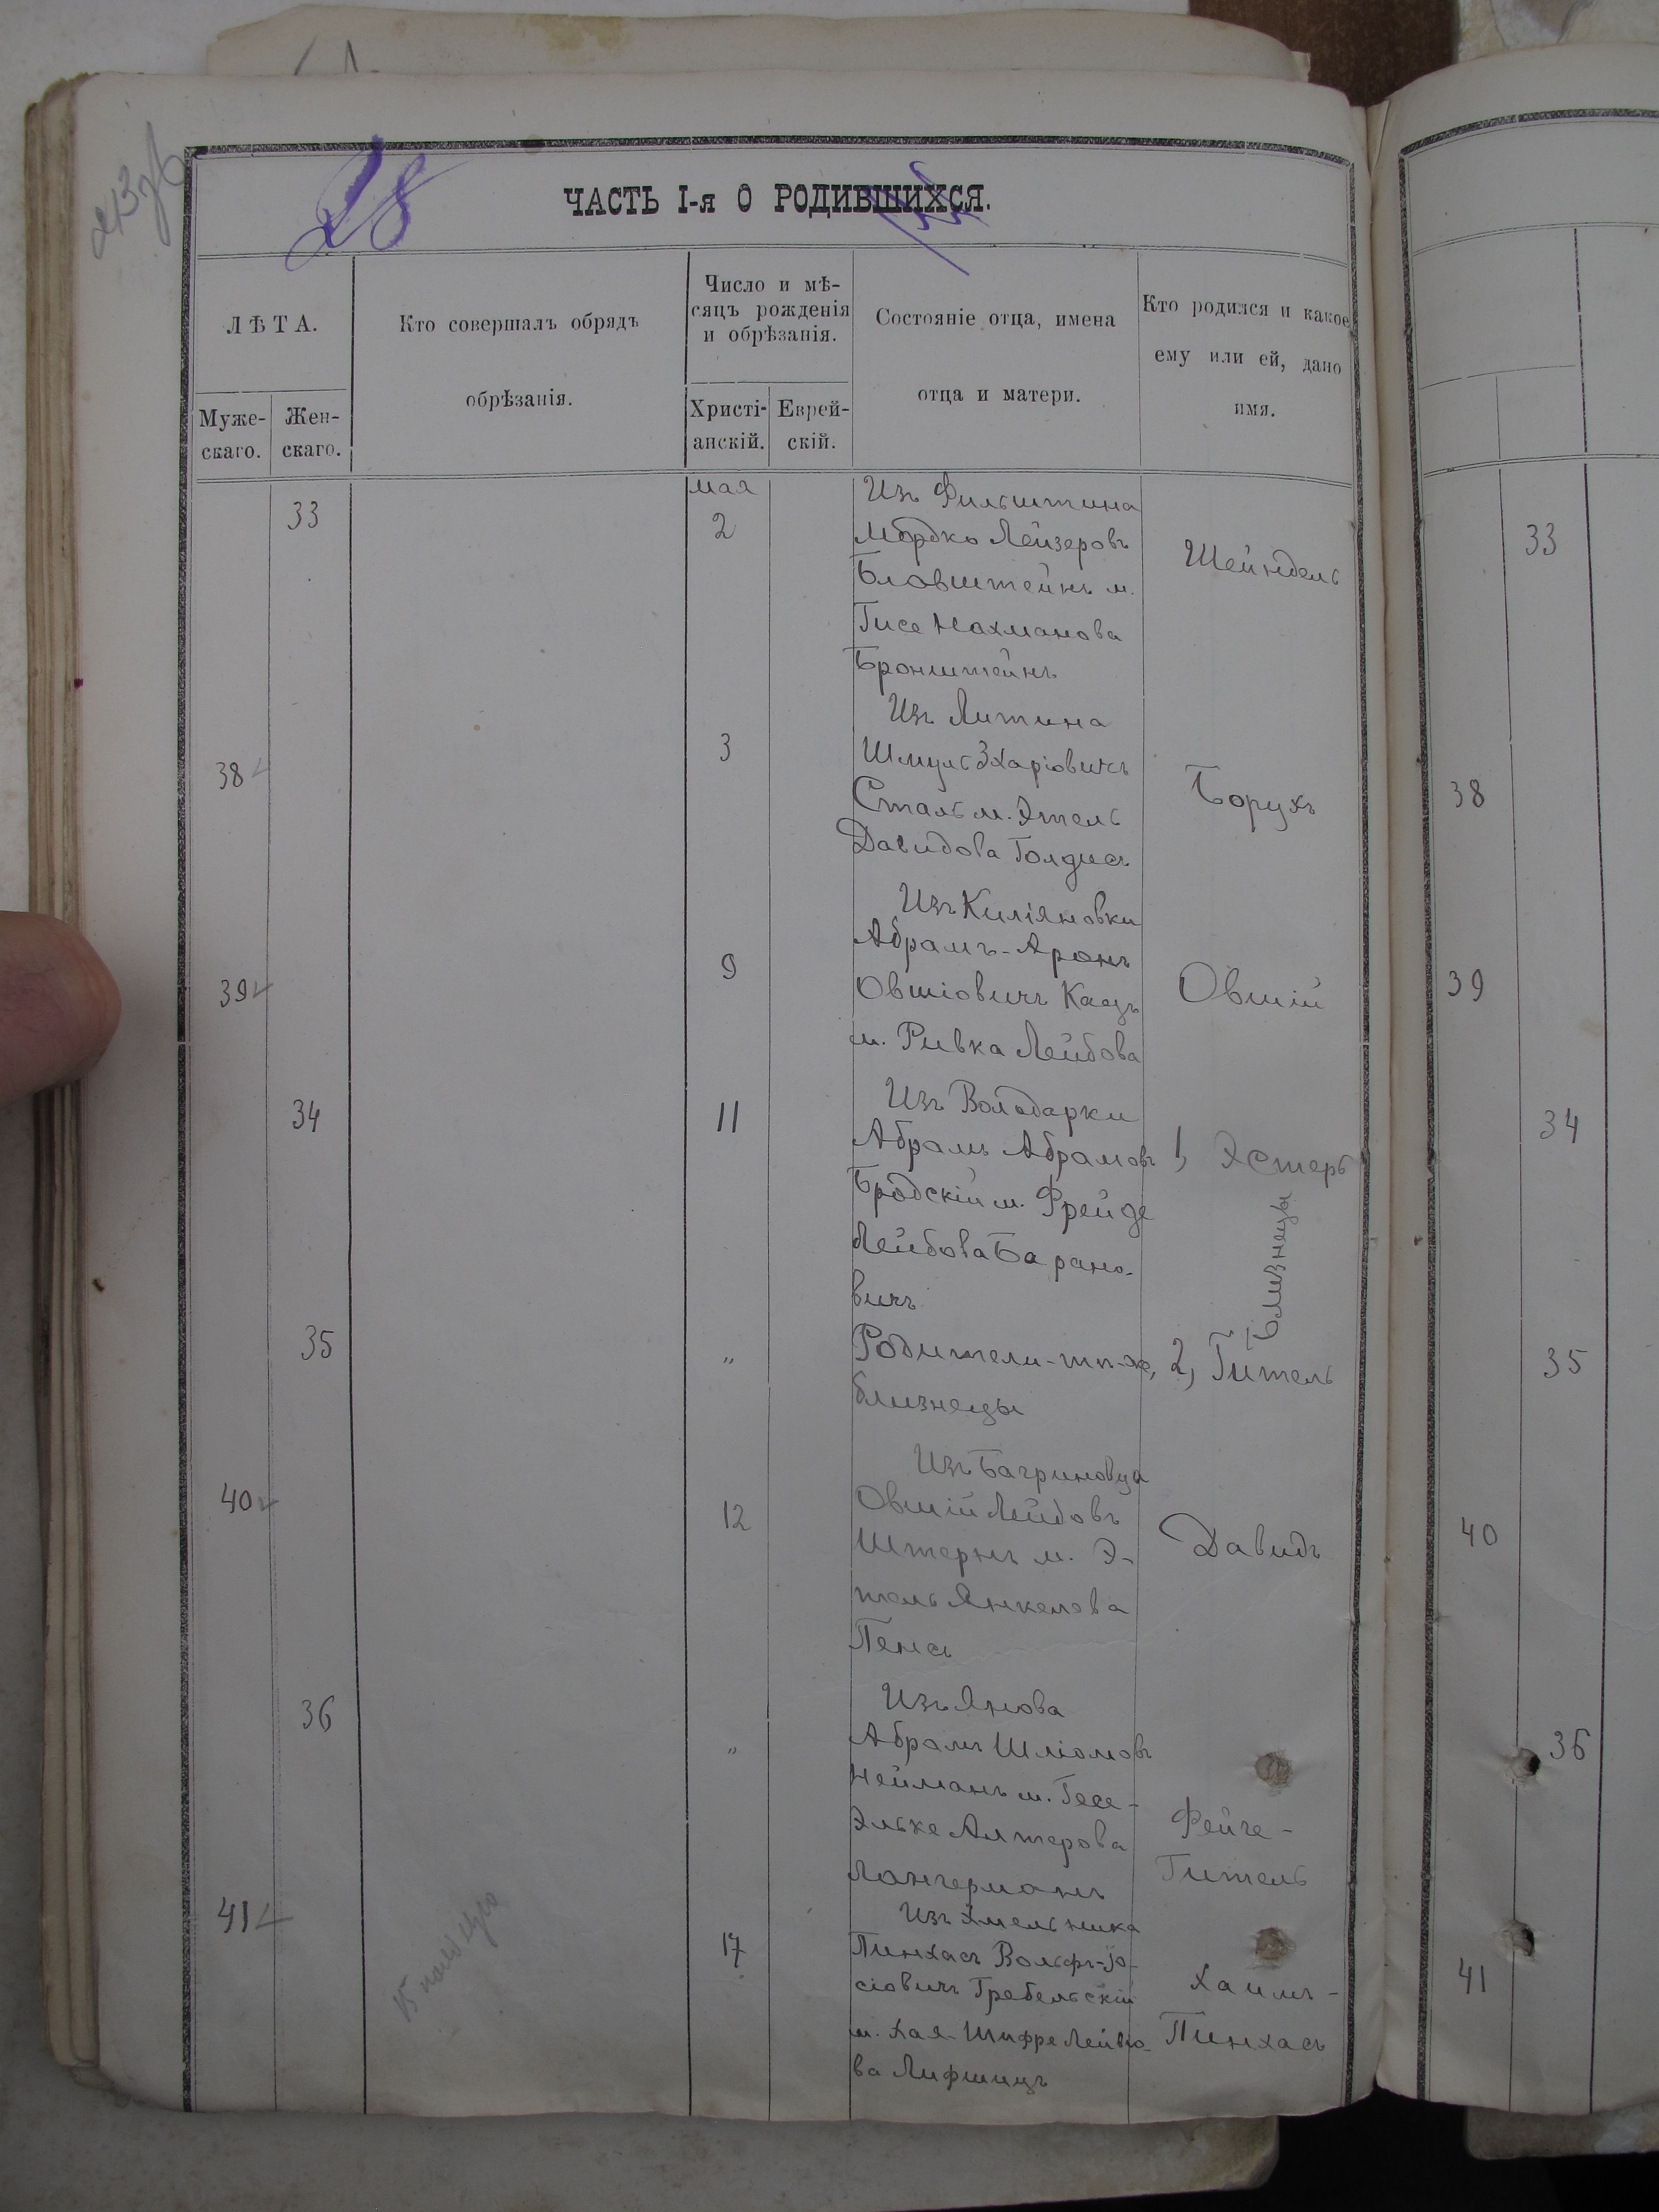 28
ЧАСТЬ I-я О РОДИВШИХСЯ.
ЛѢТА.
Муже-
скаго.
Жен-
скаго.
Кто совершалъ обрядъ
обрѣзанія.
Число и мѣ-
сяцъ рожденія
и обрѣзанія.
Христі-
анскій.
Еврей-
скій.
Состояніе отца, имена
отца и матери.
Кто родился и какое
ему или ей, дано
имя.
мая
33
2
Изъ Фильштина
Мордко Лейзеровъ
Бловштейнъ м.
Гисе Нахманова
Бронштейнъ
Шейндель
33
38
3
Изъ Литина
Шмуль Зхаріовичъ
Сталь м. Этель
Давидова Голдисъ
Борухъ
38
39
9
Изъ Киліяновки
Абрамъ-Аронъ
Овшіовичъ Кацъ
м. Ривка Лейбова
Овшій
39
34
11
Изъ Володарки
Абрамъ Абрамовъ
Бродскій м. Фрейде
Лейбова Барано-
вичъ
1, Эстеръ
Близнецы
34
35
„
Родители-тѣ-же,
близнецы
2, Гитель
35
40
12
Изъ Багриновца
Овшій Лейбовъ
Штернъ м. Э-
тель Янкелева
Пенсъ
Давидъ
40
36
„
Изъ Янова
Абрамъ Шліомовъ
Нейманъ м. Гесе-
Эльке Алтерова
Лангерманъ
Фейге-
Гитель
36
41
17
Изъ Хмельника
Пинхасъ Вольфъ-Іо-
сіовичъ Гребельскій
м. Хая-Шифре Лейбо-
ва Лифшицъ
Хаимъ-
Пинхасъ
41